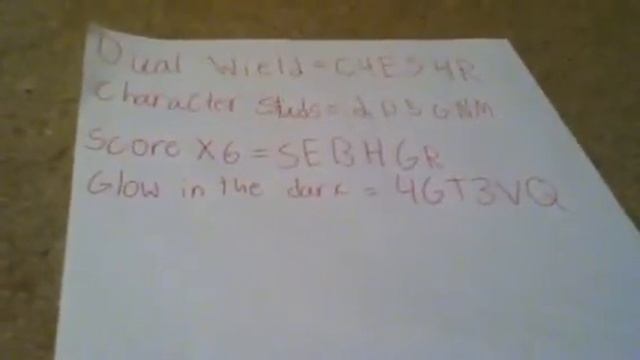 Dual Wield = C4ES4R
Character Studs =
Score X6 = SEBHGR
Glow in the dark = 4GT3VQ